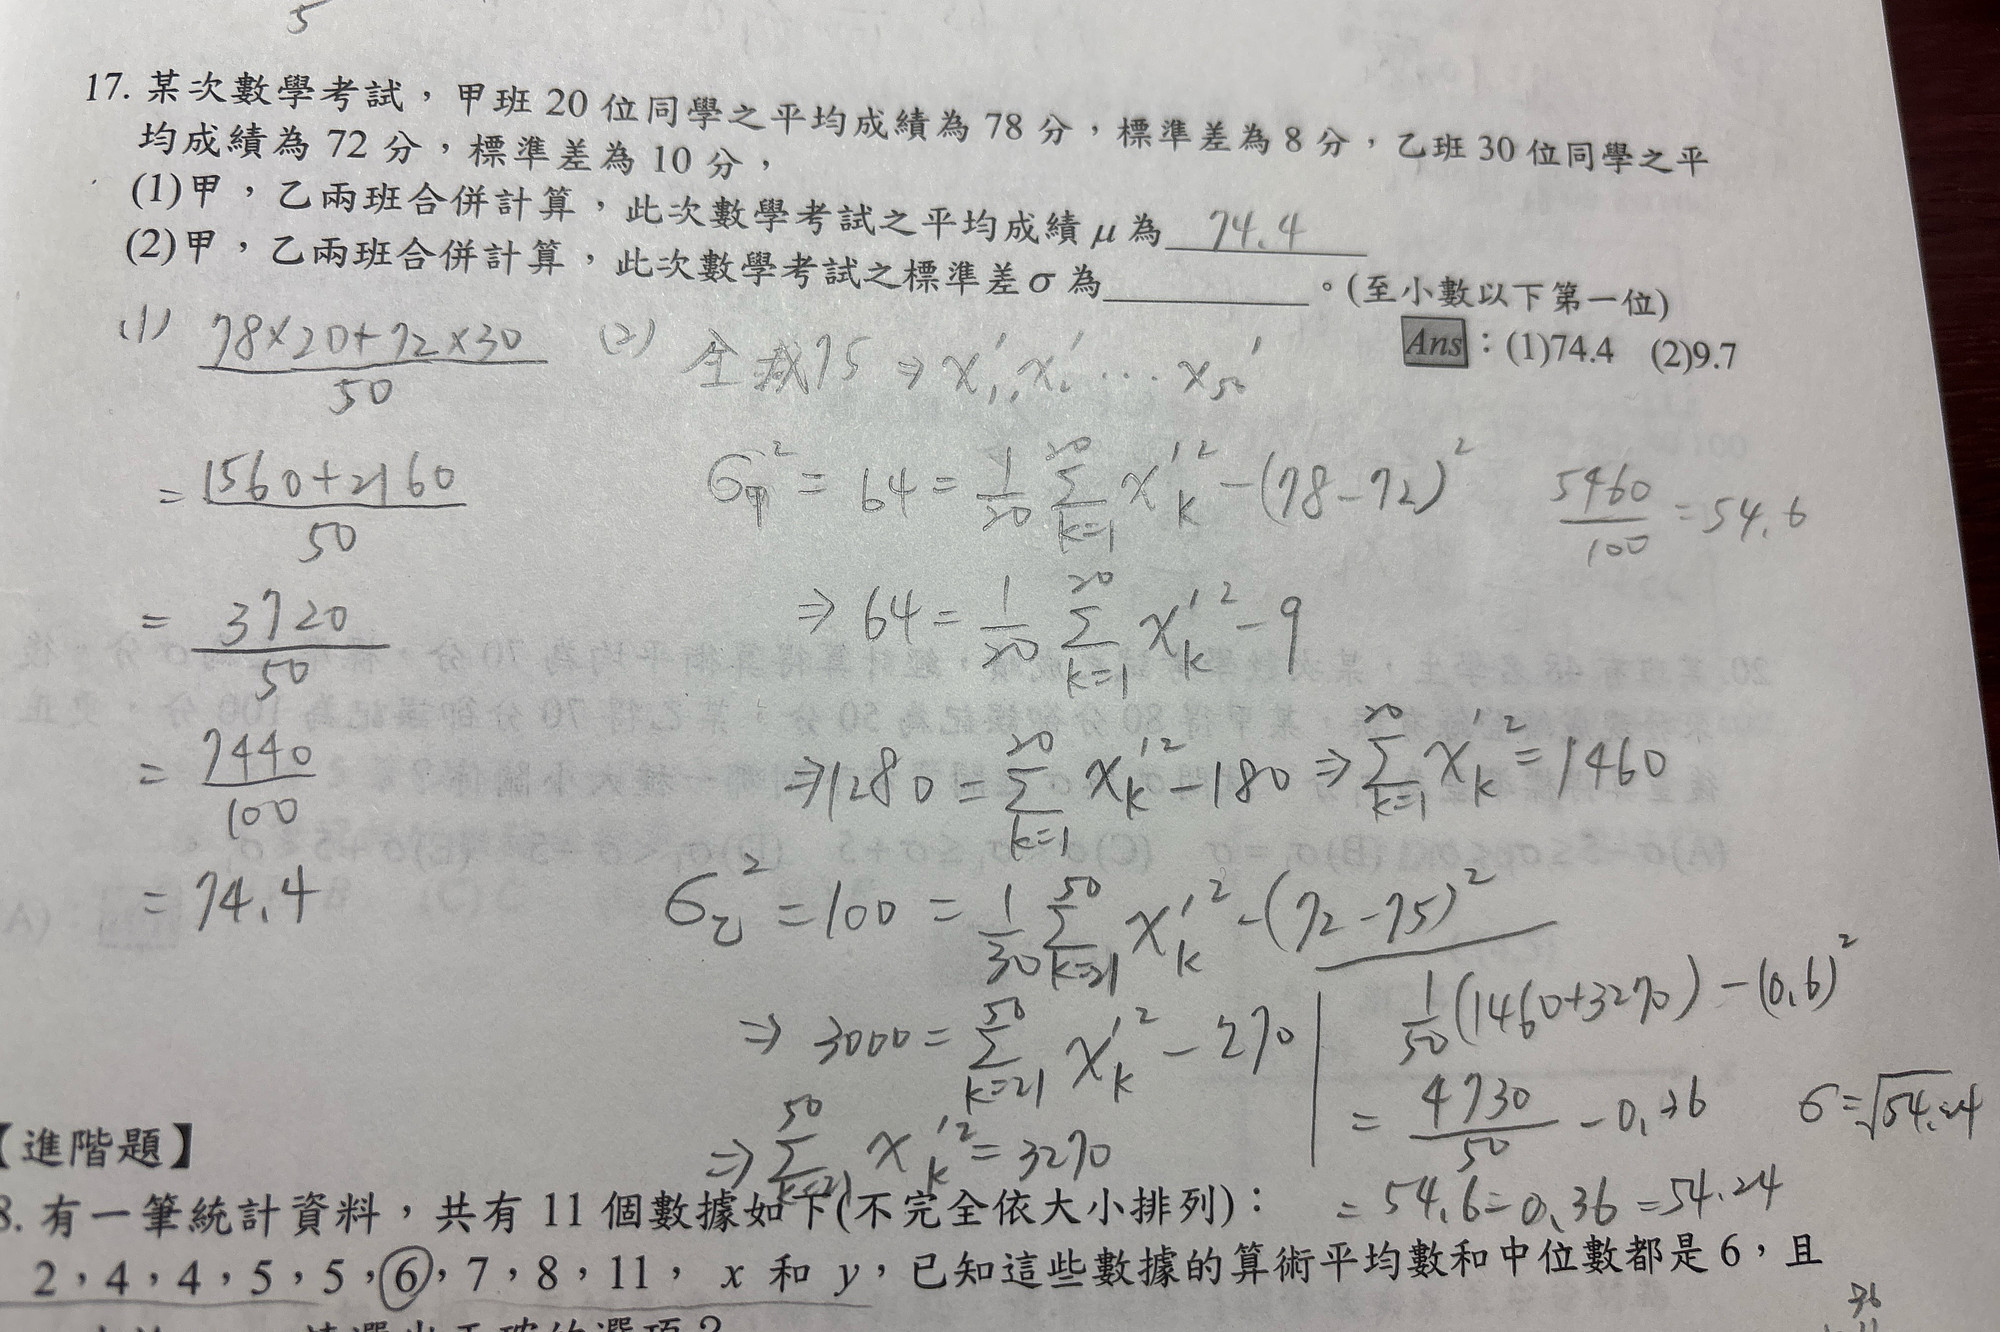 5
17. 某次數學考試，甲班 20 位同學之平均成績為 78 分，標準差為 8 分，乙班 30 位同學之平
均成績為 72 分，標準差為 10 分，
(1)甲，乙兩班合併計算，此次數學考試之平均成績 μ 為 74.4
(2)甲，乙兩班合併計算，此次數學考試之標準差 σ 為__________。(至小數以下第一位)
Ans：(1)74.4 (2)9.7
(1) (78×20+72×30)/50
= (1560+2160)/50
= 3720/50
= 7440/100
= 74.4
(2) 全減75 ⇒ x₁', x₂' ... x₅₀'
σ甲² = 64 = 1/20 Σ(k=1→20) xₖ'² - (78-72)²
⇒ 64 = 1/20 Σ(k=1→20) xₖ'² - 9
⇒ 1280 = Σ(k=1→20) xₖ'² - 180 ⇒ Σ(k=1→20) xₖ'² = 1460
σ乙² = 100 = 1/30 Σ(k=21→50) xₖ'² - (72-75)²
⇒ 3000 = Σ(k=21→50) xₖ'² - 270
⇒ Σ(k=21→50) xₖ'² = 3270
5460/100 = 54.6
1/50 (1460+3270) - (0.6)²
= 4730/50 - 0.36
= 54.6 - 0.36 = 54.24
σ = √54.24
【進階題】
8. 有一筆統計資料，共有 11 個數據如下(不完全依大小排列)：
2，4，4，5，5，6，7，8，11， x 和 y，已知這些數據的算術平均數和中位數都是 6，且